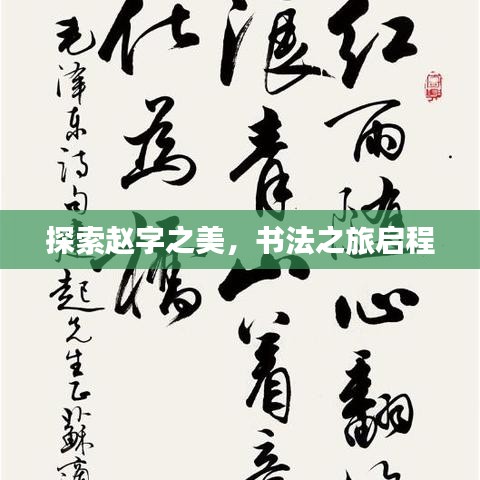 探索赵字之美，书法之旅启程
红雨随心翻
浪青山着意
化为桥
毛泽东诗句 起先生正 苏适